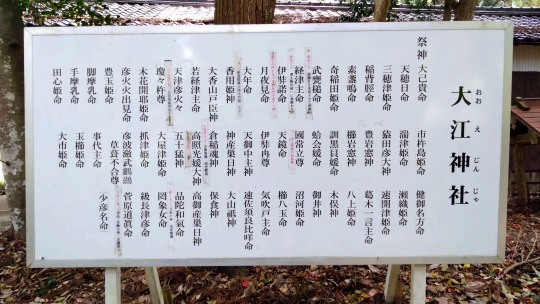 大江神社
おおえじんじゃ
祭神 大己貴命 市杵島姫命 健御名方命
天穂日命 湍津姫命 瀬織姫命
三穂津姫命 猿田彦大神 速開津姫命
稲背脛命 豊岩窓神 葛木一言主命
素盞鳴命 櫛岩窓神 八上姫命
奇稲田姫命 訓黒貝媛命 木俣神
武甕槌命 蛤会媛命 御井神
経津主命 国常立尊 沼河姫命
伊弉諾命 天鏡命 櫛八玉命
月夜見命 伊弉冉尊 気吹戸主命
大年命 天御中主神 速佐須良比咩命
香用姫神 神産巣日神 大山祇神
大香山戸臣神 倉稲魂神 保食神
若経津主命 高照光媛大神 高御産巣日神
天津彦火々 五十猛神 品陀和氣命
瓊々杵尊 大屋津姫命 罔象女命
木花開耶姫命 抓津姫命 級長津彦命
彦火火出見命 彦波瀲武鸕鶿 菅原道眞命
豊玉姫命 草葺不合尊 少彦名命
脚摩乳命 事代主命
手摩乳命 玉櫛姫命
田心姫命 大市姫命